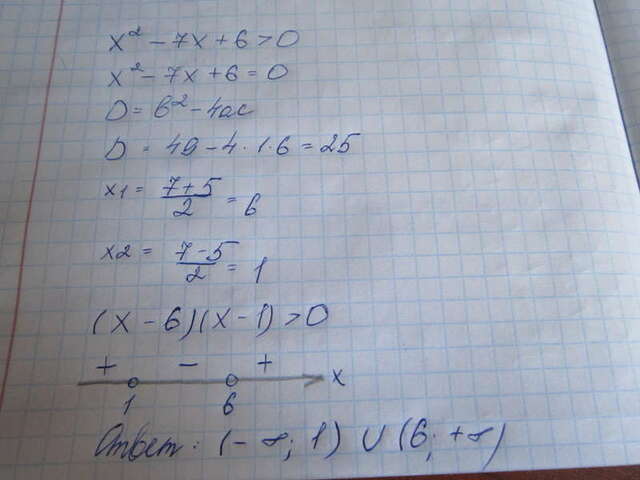 x² - 7x + 6 > 0
x² - 7x + 6 = 0
D = b² - 4ac
D = 49 - 4 · 1 · 6 = 25
x1 = (7 + 5)/2 = 6
x2 = (7 - 5)/2 = 1
(x - 6)(x - 1) > 0
+ - +
1 6 x
Ответ: (- ∞; 1) ∪ (6; +∞)